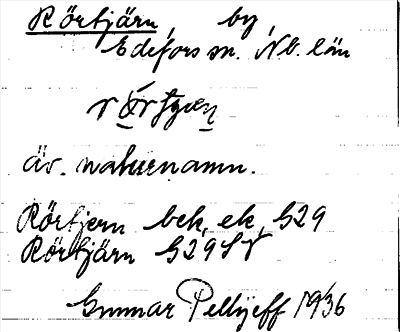 Rörtjärn, by,
Edefors sn. Nb. län
äv. naturnamn.
Rörtjern bek, ek, G29
Rörtjärn G29ST
Gunnar Pellijeff 1936